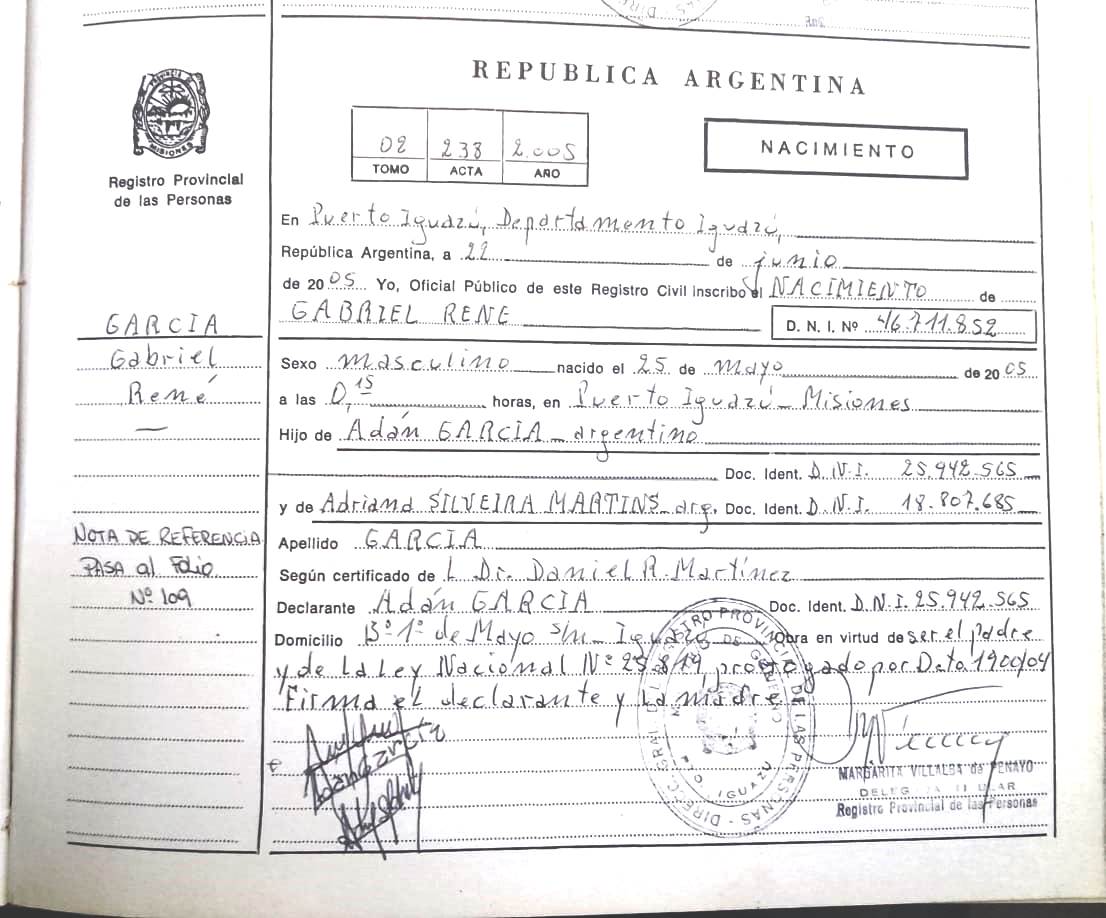 REPUBLICA ARGENTINA
MISIONES
Registro Provincial
de las Personas
02 238 2.005
TOMO ACTA AÑO
NACIMIENTO
En Puerto Iguazú, Departamento Iguazú,
República Argentina, a 22 de junio
de 2005 Yo, Oficial Público de este Registro Civil inscribo el NACIMIENTO de
GABRIEL RENE D. N. I. Nº 46.711.852
GARCIA
Gabriel
René
—
Sexo masculino nacido el 25 de mayo de 2005
a las 0,15 horas, en Puerto Iguazú - Misiones
Hijo de Adán GARCIA - argentino
Doc. Ident. D.N.I. 25.942.565
y de Adriana SILVEIRA MARTINS - arg. Doc. Ident. D.N.I. 18.807.685
NOTA DE REFERENCIA
PASA al Folio
Nº 109
Apellido GARCIA
Según certificado de L Dr. Daniel R. Martínez
Declarante Adán GARCIA Doc. Ident. D.N.I. 25.942.565
Domicilio Bº 1º de Mayo s/n - Iguazú Obra en virtud de ser el padre
y de la Ley Nacional Nº 25.819, prorrogado por Dcto 1900/04
Firma el declarante y la madre
MARGARITA VILLALBA de PENAYO
Registro Provincial de las Personas